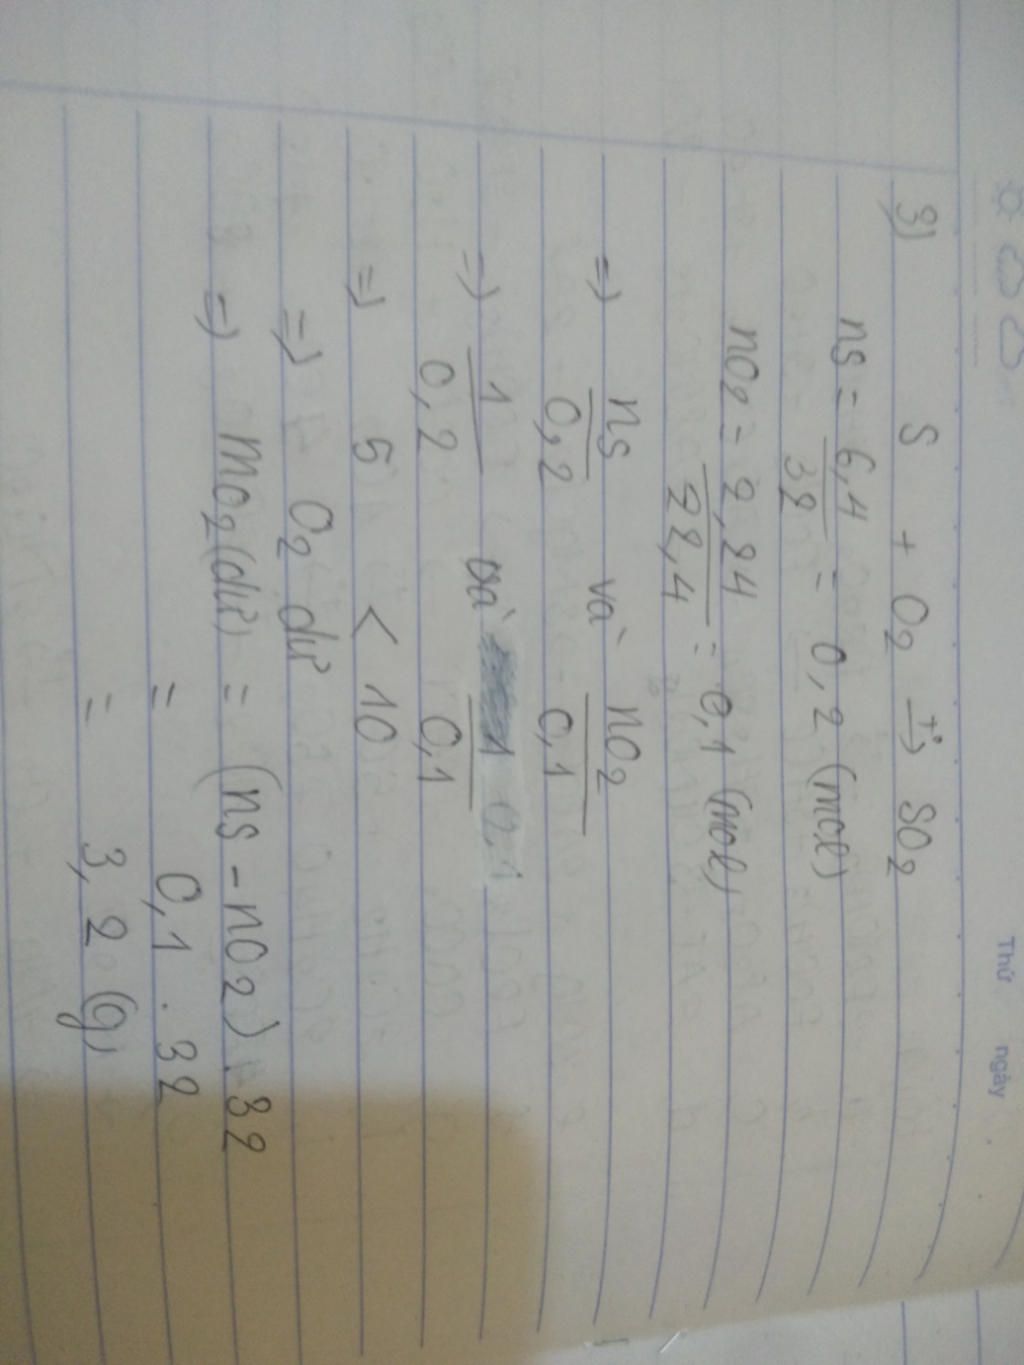 Thứ ngày
3) S + O2 t°→ SO2
nS = 6,4/32 = 0,2 (mol)
nO2 = 2,24/22,4 = 0,1 (mol)
=) nS/0,2 và nO2/0,1
=) 1/0,2 và 1/0,1
=) 5 < 10
=) O2 dư
=) mO2(dư) = (nS - nO2) . 32
= 0,1 . 32
= 3,2 (g)